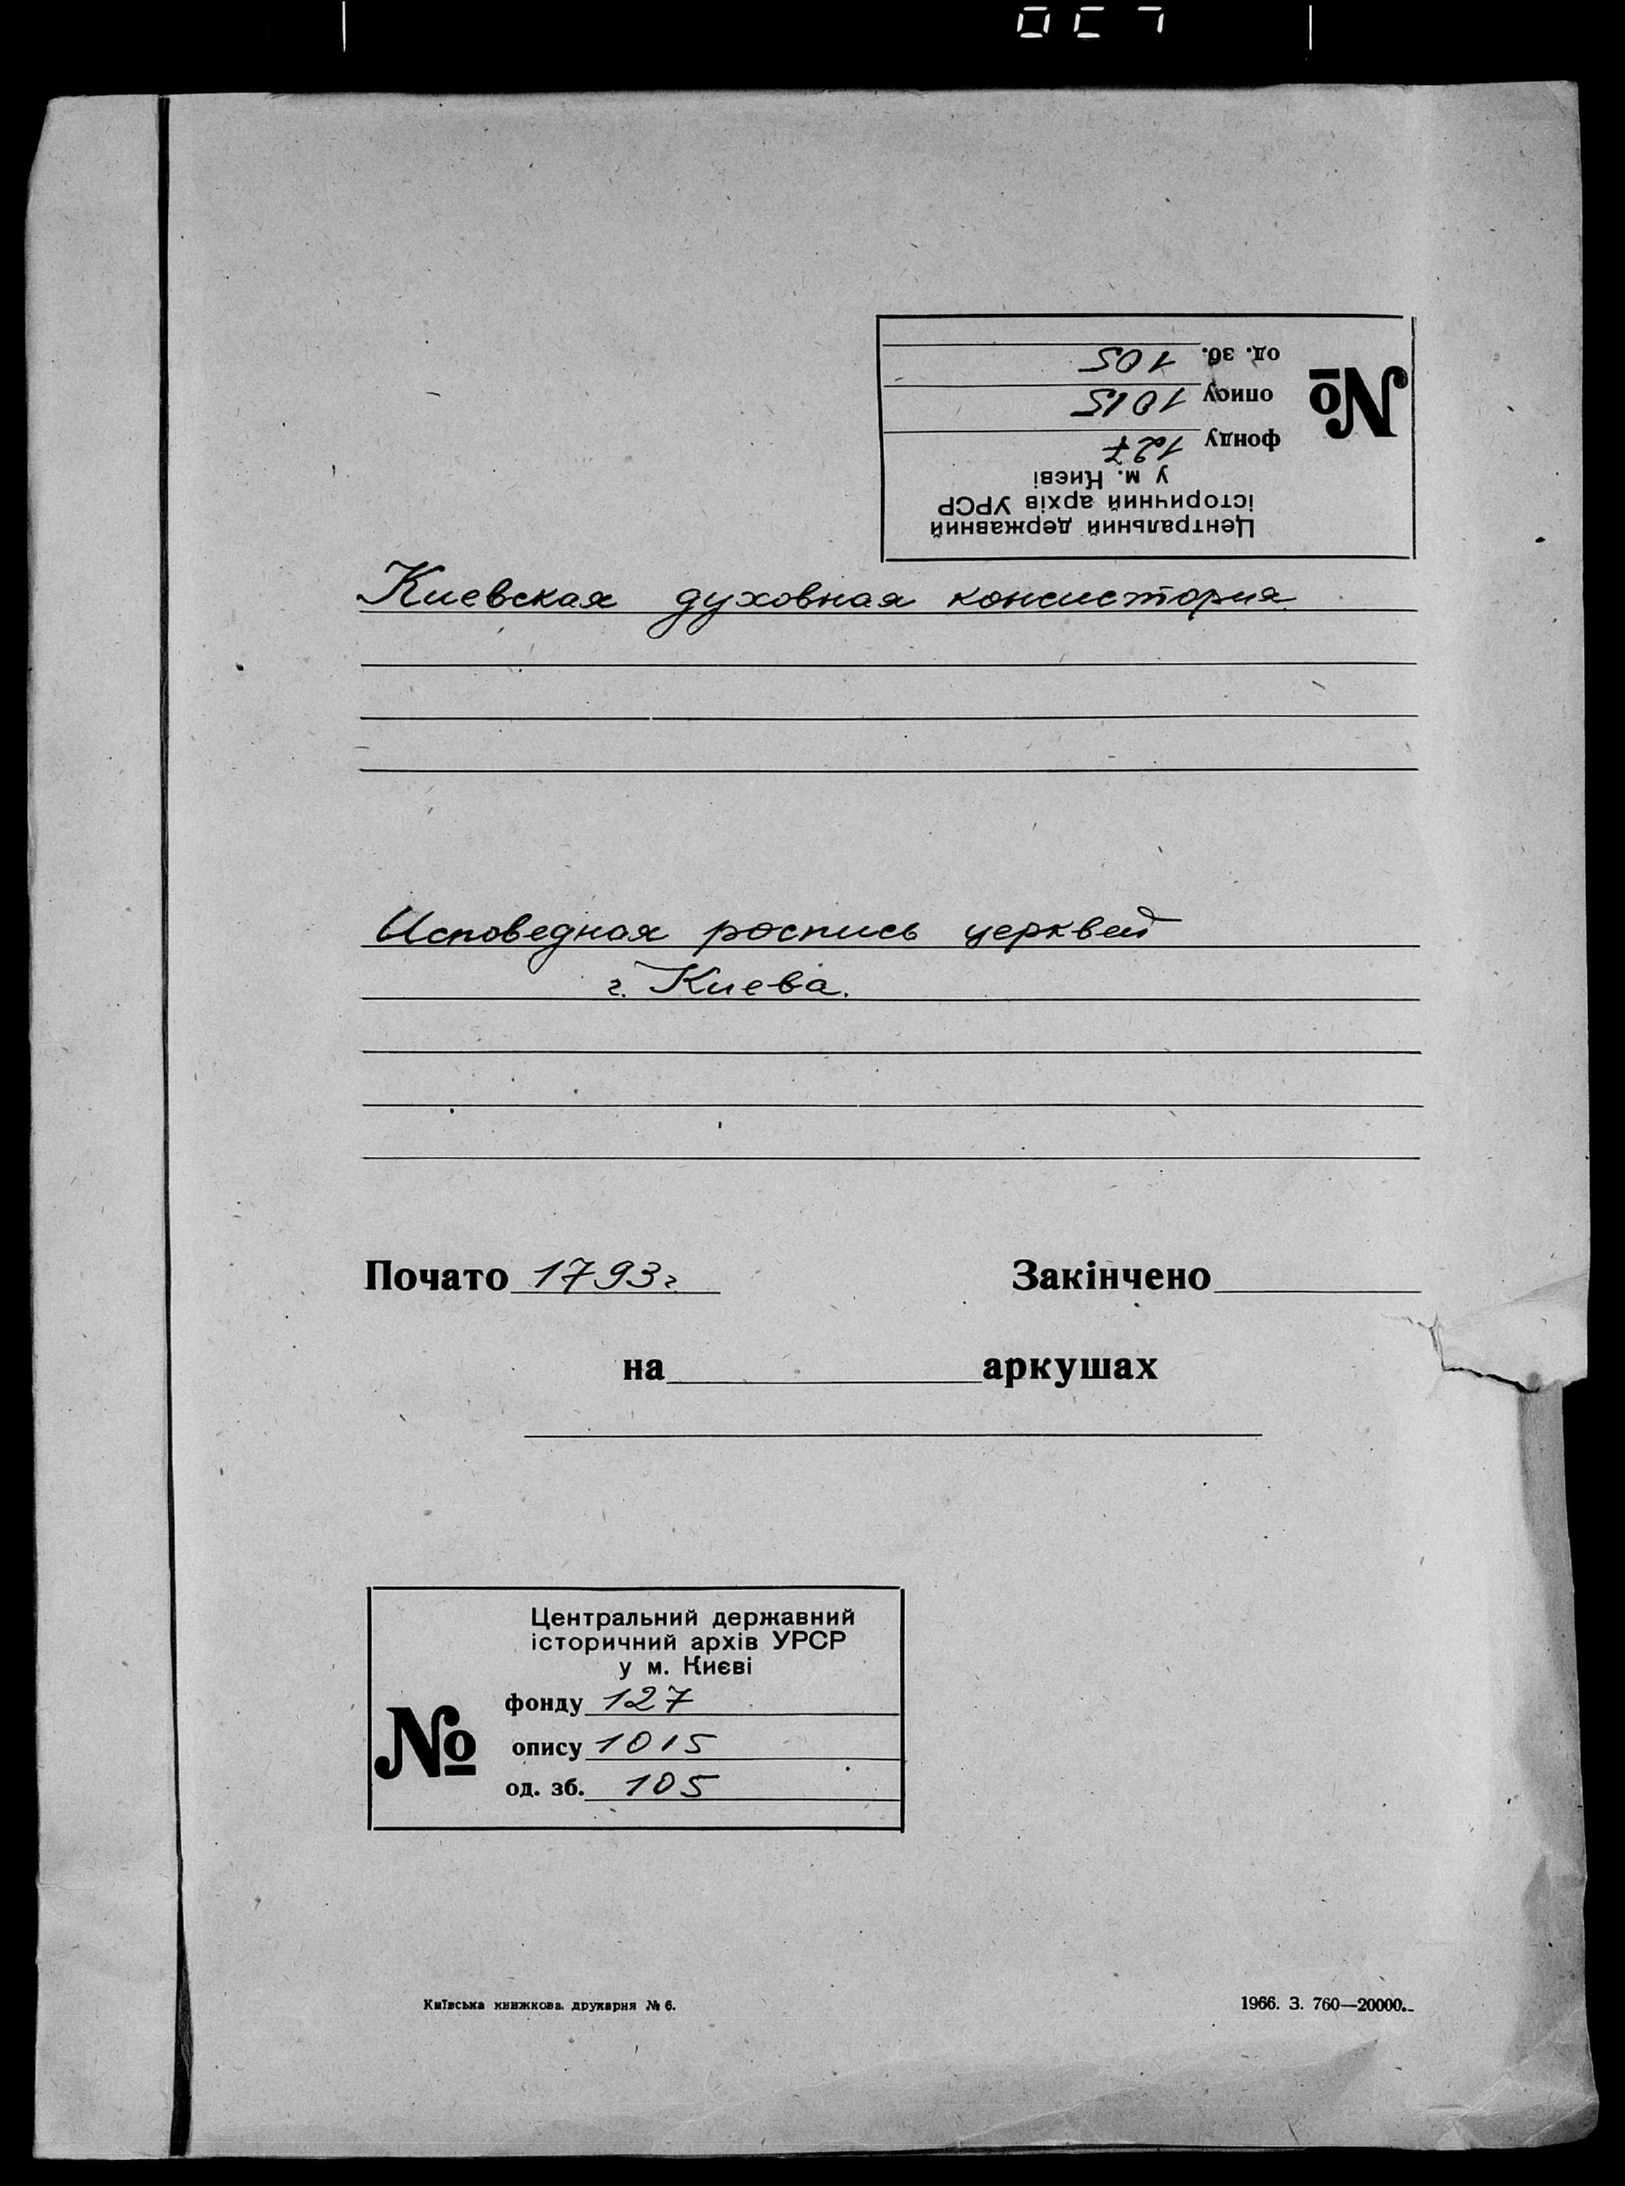 од. зб. 105
опису 1015
фонду 127
№
у м. Києві
історичний архів УРСР
Центральний державний
Киевская духовная консистория
Исповедная роспись церквей
г. Киева.
Почато 1793 г Закінчено
на аркушах
Центральний державний
історичний архів УРСР
у м. Києві
фонду 127
№ опису 1015
од. зб. 105
Київська книжкова друкарня № 6.
1966. З. 760—20000.